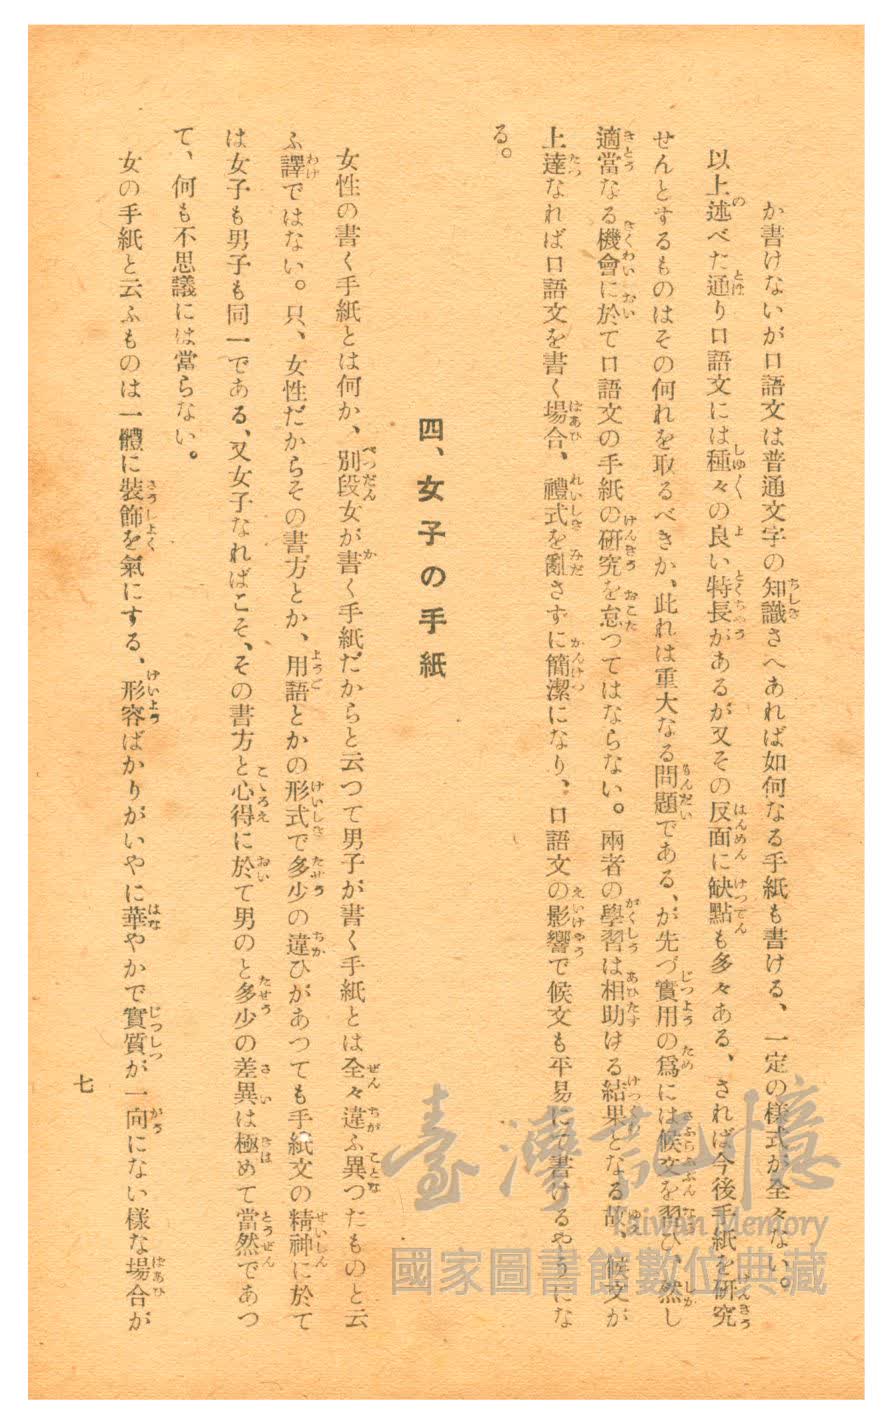 か書けないが口語文は普通文字の知識さへあれば如何なる手紙も書ける、一定の樣式が全々ない。
以上述べた通り口語文には種々の良い特長があるが又その反面に缺點も多々ある、されば今後手紙を硏究
せんとするものはその何れを取るべきか、此れは重大なる問題である、が先づ實用の爲には候文を習ひ、然し
適當なる機會に於て口語文の手紙の硏究を怠つてはならない。兩者の學習は相助ける結果となる故、候文が
上達なれば口語文を書く場合、禮式を亂さずに簡潔になり、口語文の影響で候文も平易にて書けるやうにな
る。
四、女子の手紙
女性の書く手紙とは何か、別段女が書く手紙だからと云つて男子が書く手紙とは全々違ふ異つたものと云
ふ譯ではない。只、女性だからその書方とか、用語とかの形式で多少の違ひがあつても手紙文の精神に於て
は女子も男子も同一である、又女子なればこそ、その書方と心得に於て男のと多少の差異は極めて當然であつ
て、何も不思議には當らない。
女の手紙と云ふものは一體に裝飾を氣にする、形容ばかりがいやに華やかで實質が一向にない樣な場合が
七
臺灣記憶
Taiwan Memory
國家圖書館數位典藏